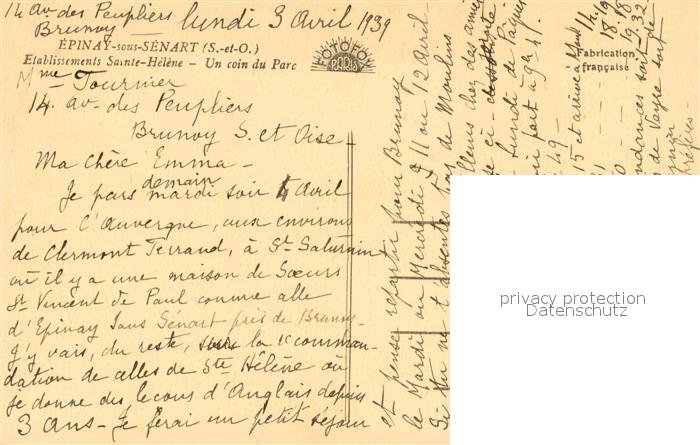 14 av. des Peupliers lundi 3 Avril 1939
Brunoy
ÉPINAY-sous-SÉNART (S.-et-O.)
Etablissements Sainte-Hélène - Un coin du Parc
FOTOFOX
PARIS
Fabrication
française
Mme Tournier
14. av. des Peupliers
Brunoy S. et Oise -
Ma chère Emma -
Je pars demain mardi soir 4 Avril
pour l'Auvergne, aux environs
de Clermont Ferrand, à St Saturnin
où il y a une maison de Soeurs
St Vincent de Paul comme celle
d'Epinay sous Sénart près de Brunoy -
J'y vais, du reste, sur la recomman-
dation de celles de Ste Hélène où
je donne des leçons d'Anglais depuis
3 ans - Je ferai un petit séjour
et pense repartir pour Brunoy
le Mardi ou Mercredi 11 ou 12 Avril -
Si tu ne t'absentes pas de Moulins
chez des amis
lundi de Pâques
part à 9h 41.
15 et arrive
privacy protection
Datenschutz